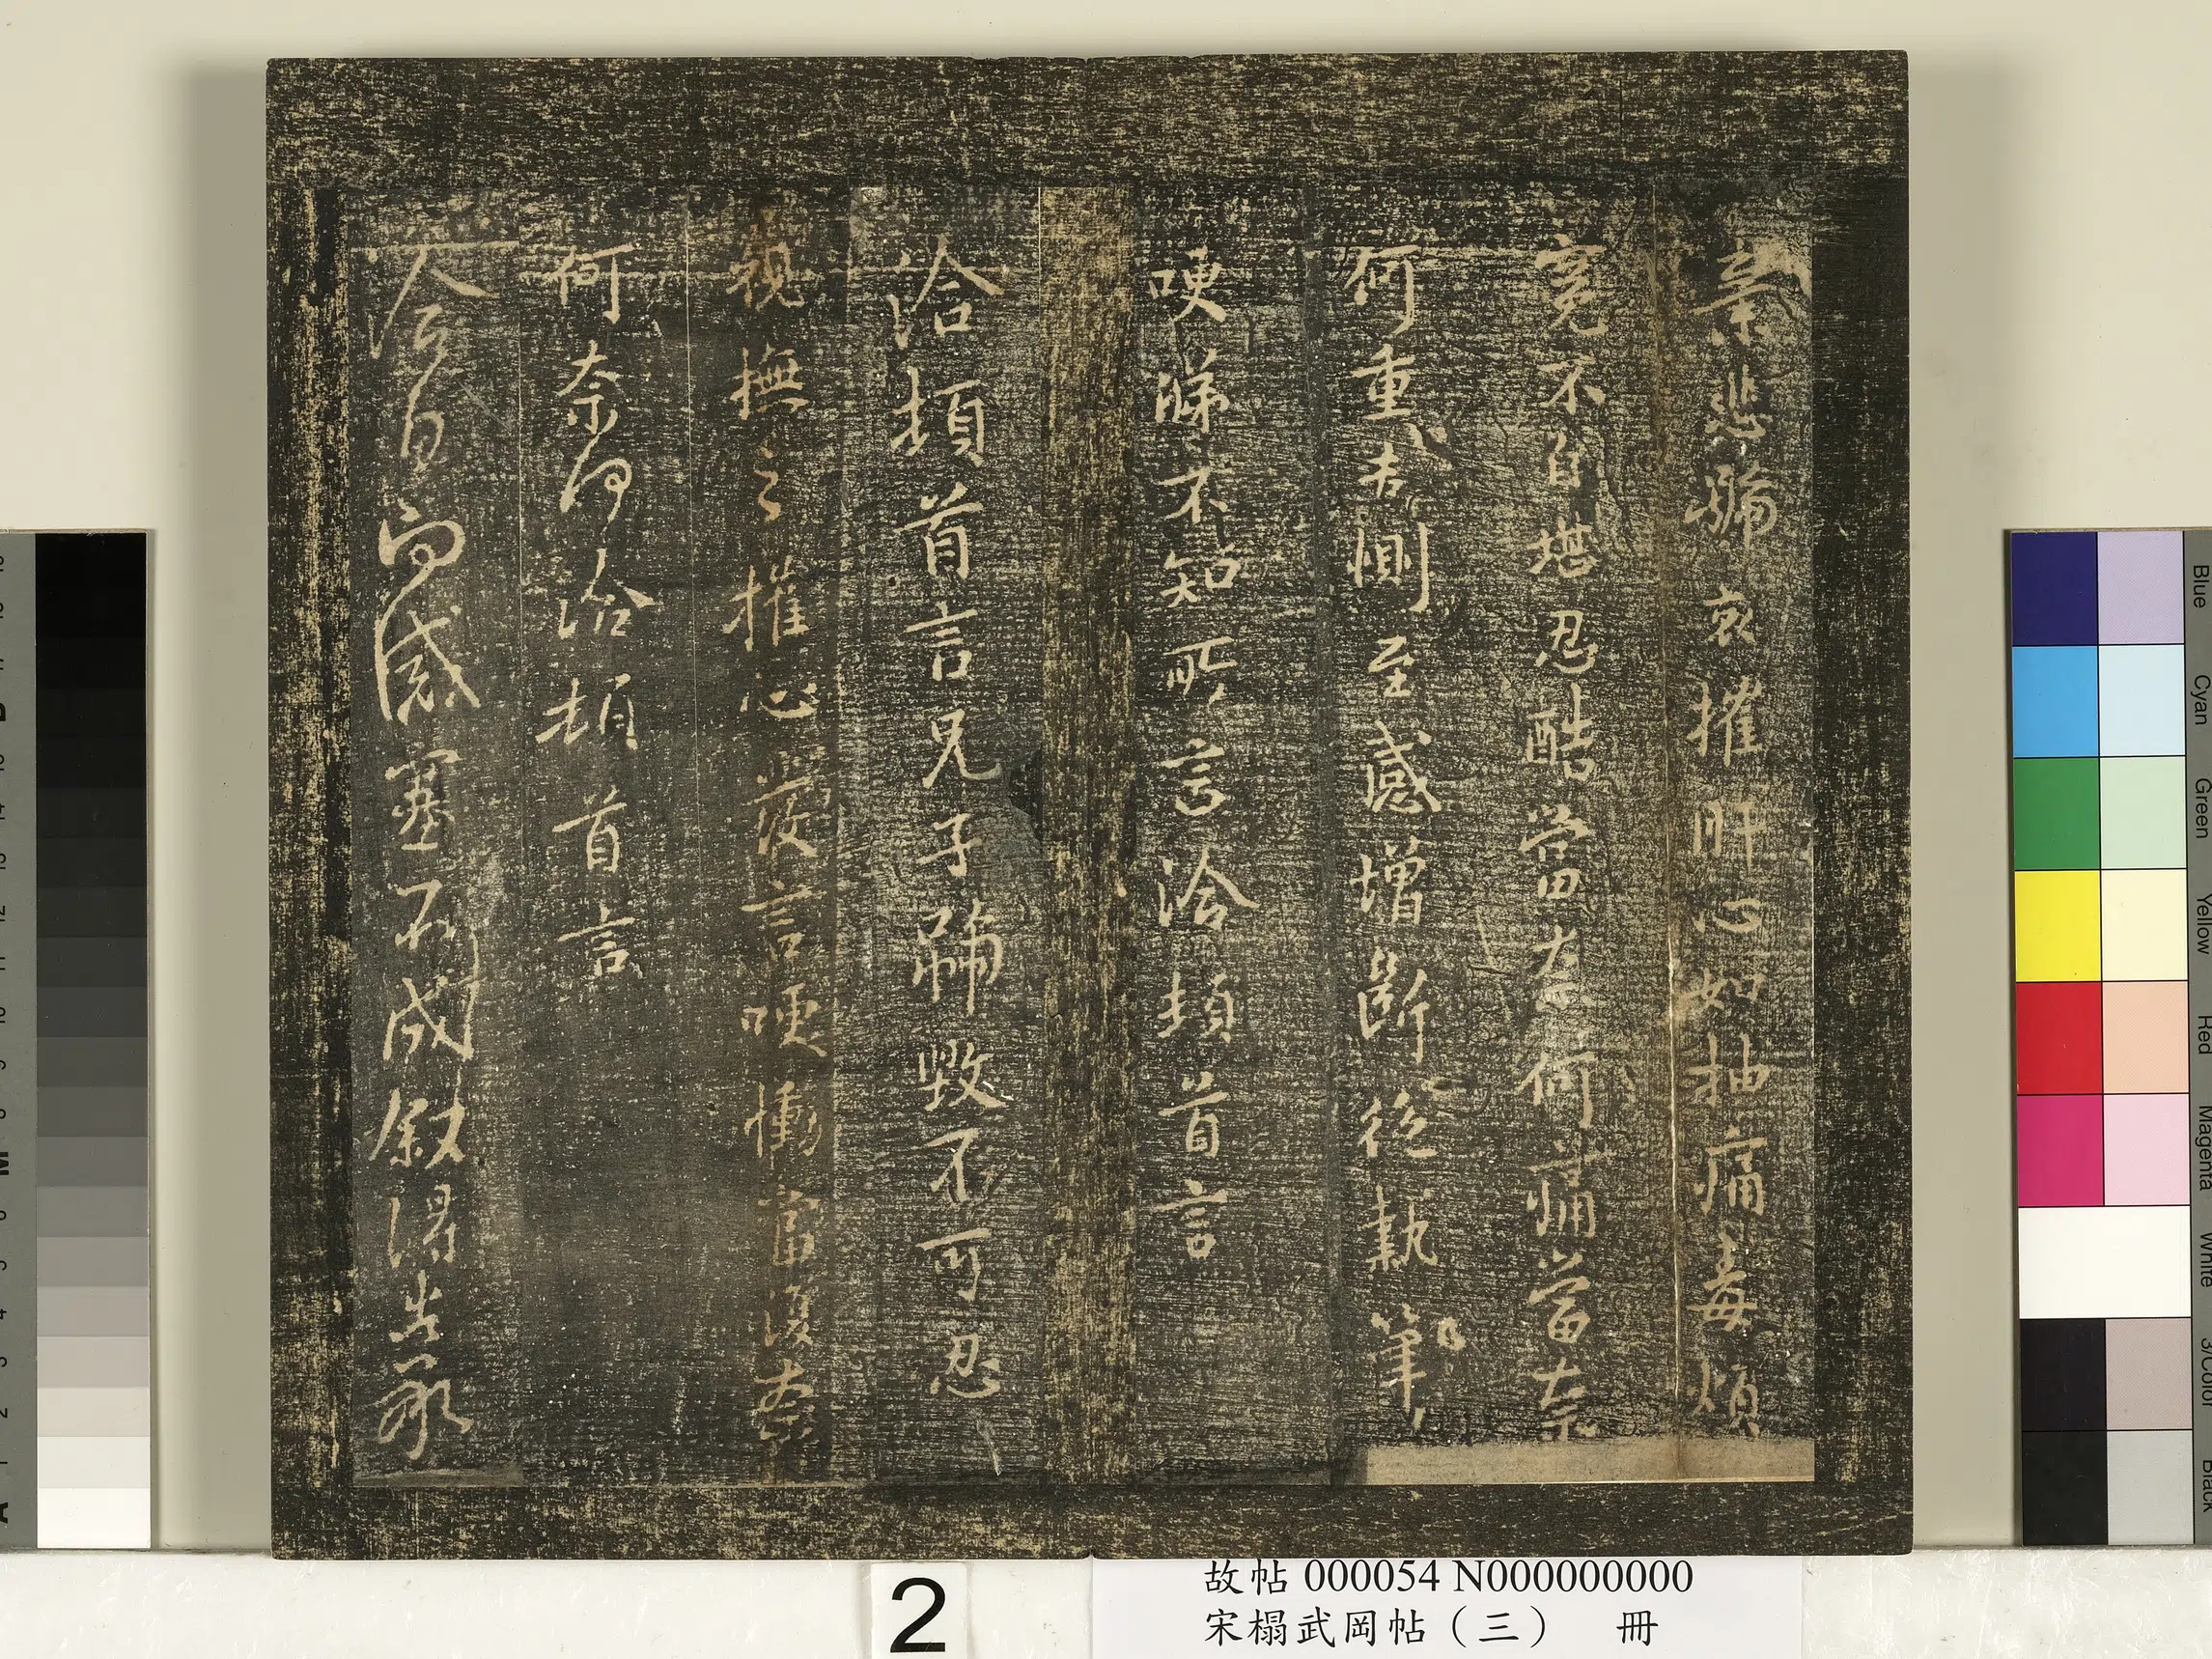 悲號哀摧肝心如抽痛毒煩
冤不自堪忍酷當奈何痛當奈
何重告惻至感增斷絕執筆
哽涕不知所言洽頓首言
洽頓首言兄子號毀不可忍
視撫之摧心發言哽慟當復奈
何奈何洽頓首言
感塞不成敘得告承
故帖 000054 N000000000
宋榻武岡帖（三） 冊
2
Blue Cyan Green Yellow Red Magenta White 3/Color Black